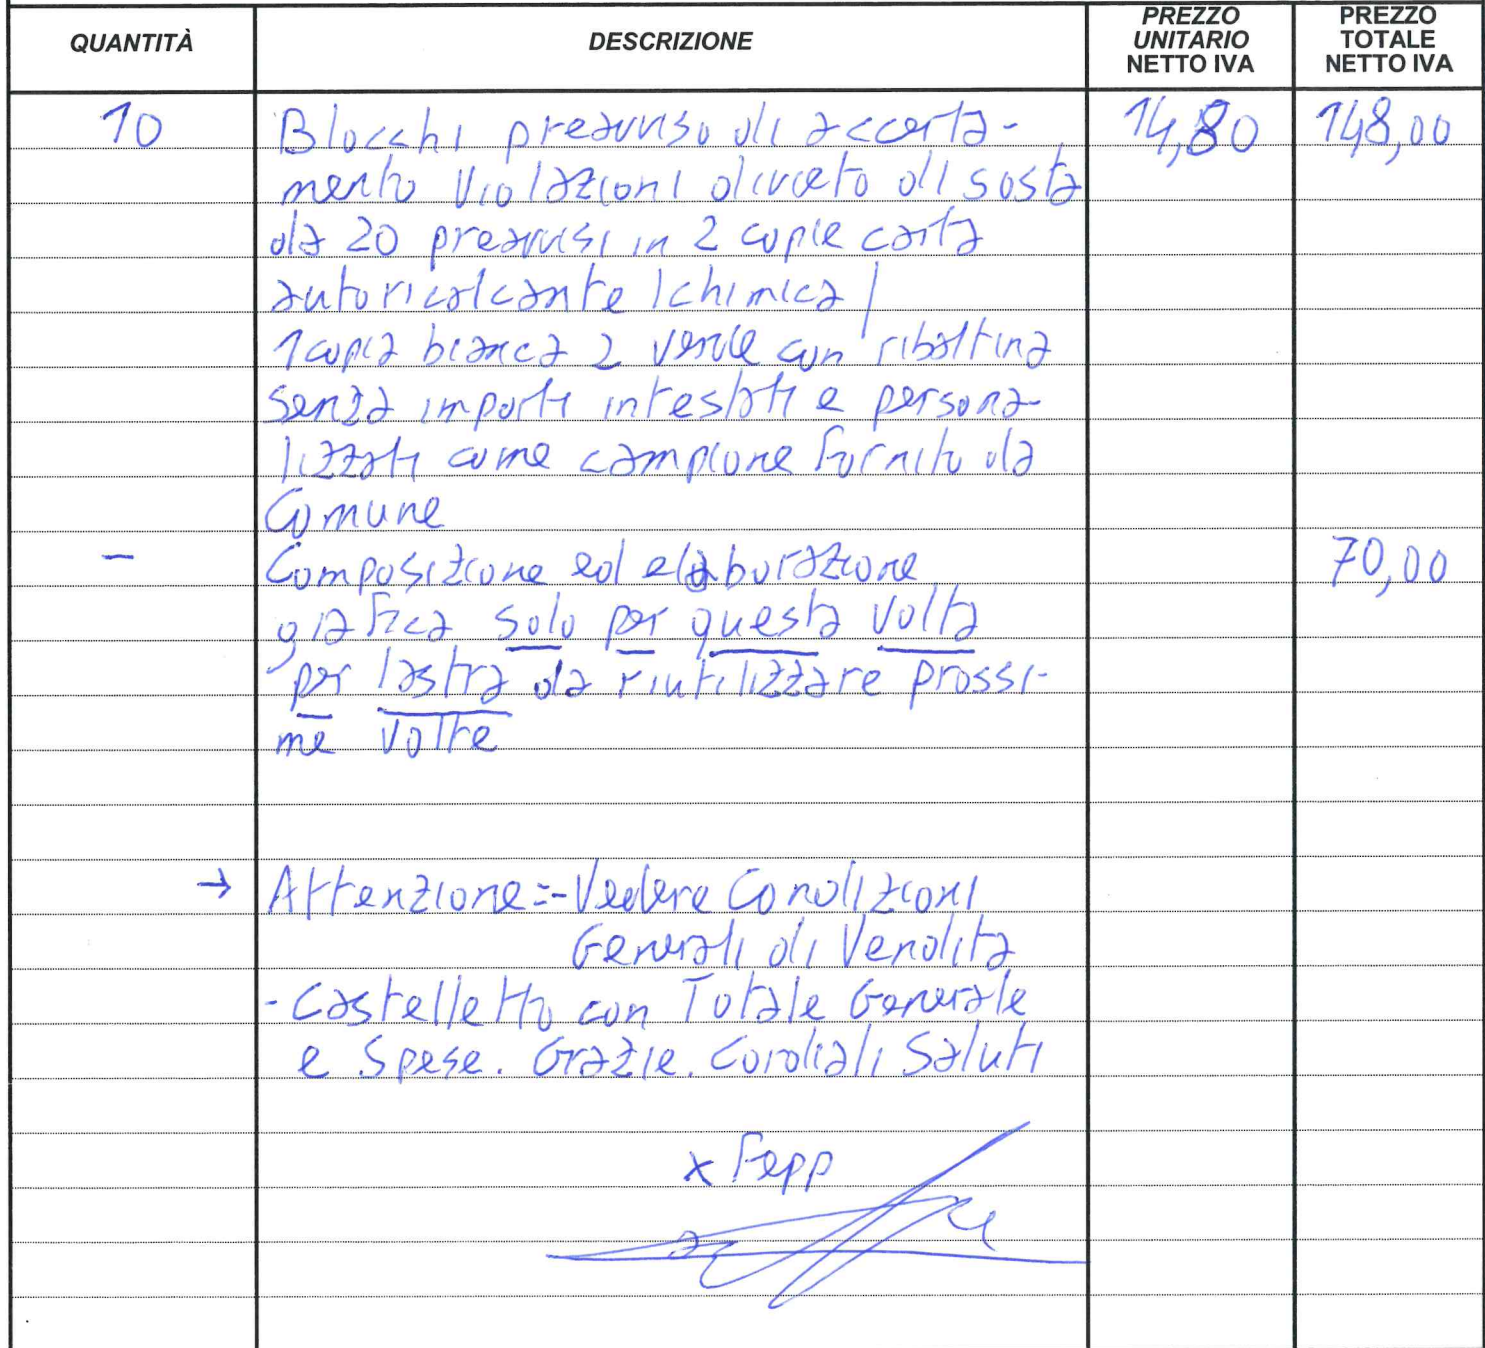 QUANTITÀ
DESCRIZIONE
PREZZO
UNITARIO
NETTO IVA
PREZZO
TOTALE
NETTO IVA
10 Blocchi preavviso di accerta- 14,80 148,00
mento violazioni divieto di sosta
da 20 preavvisi in 2 copie carta
autoricalcante /chimica/
1 copia bianca 2 verde con ribaltina
senza importi intestati e persona-
lizzati come campione fornito da
Comune
- Composizione ed elaborazione 70,00
grafica solo per questa volta
per lastra da riutilizzare prossi-
me volte
→ Attenzione:- Vedere Condizioni
Generali di Vendita
- Castelletto con Totale Generale
e Spese. Grazie. Cordiali Saluti
x Fepp